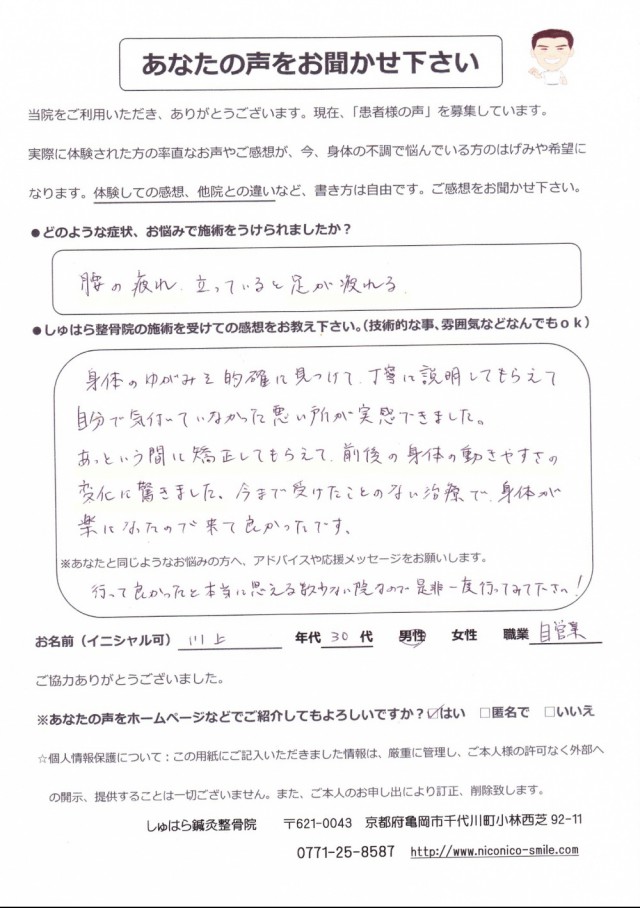 あなたの声をお聞かせ下さい
当院をご利用いただき、ありがとうございます。現在、「患者様の声」を募集しています。
実際に体験された方の率直なお声やご感想が、今、身体の不調で悩んでいる方のはげみや希望に
なります。体験しての感想、他院との違いなど、書き方は自由です。ご感想をお聞かせ下さい。
●どのような症状、お悩みで施術をうけられましたか？
腰の疲れ、立っていると足が疲れる。
●しゅはら整骨院の施術を受けての感想をお教え下さい。（技術的な事、雰囲気などなんでもｏｋ）
身体のゆがみを的確に見つけて、丁寧に説明してもらえて
自分で気付いていなかった悪い所が実感できました。
あっという間に矯正してもらえて、前後の身体の動きやすさの
変化に驚きました。今まで受けたことのない治療で、身体が
楽になったので来て良かったです。
※あなたと同じようなお悩みの方へ、アドバイスや応援メッセージをお願いします。
行って良かったと本当に思える数少ない院なので是非一度行ってみて下さい!
お名前（イニシャル可） 川上 年代 30 代 男性 女性 職業 自営業
ご協力ありがとうございました。
※あなたの声をホームページなどでご紹介してもよろしいですか？☑はい □匿名で □いいえ
☆個人情報保護について：この用紙にご記入いただきました情報は、厳重に管理し、ご本人様の許可なく外部へ
の開示、提供することは一切ございません。また、ご本人のお申し出により訂正、削除致します。
しゅはら鍼灸整骨院 〒621-0043 京都府亀岡市千代川町小林西芝 92-11
0771-25-8587 http://www.niconico-smile.com